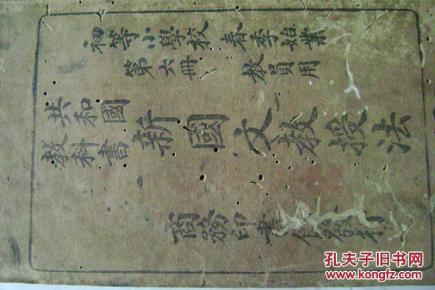 初等小學校 春季始業
第六冊 教員用
共和國
教科書
新國文教授法
商務印書館發行
孔夫子旧书网
www.kongfz.com